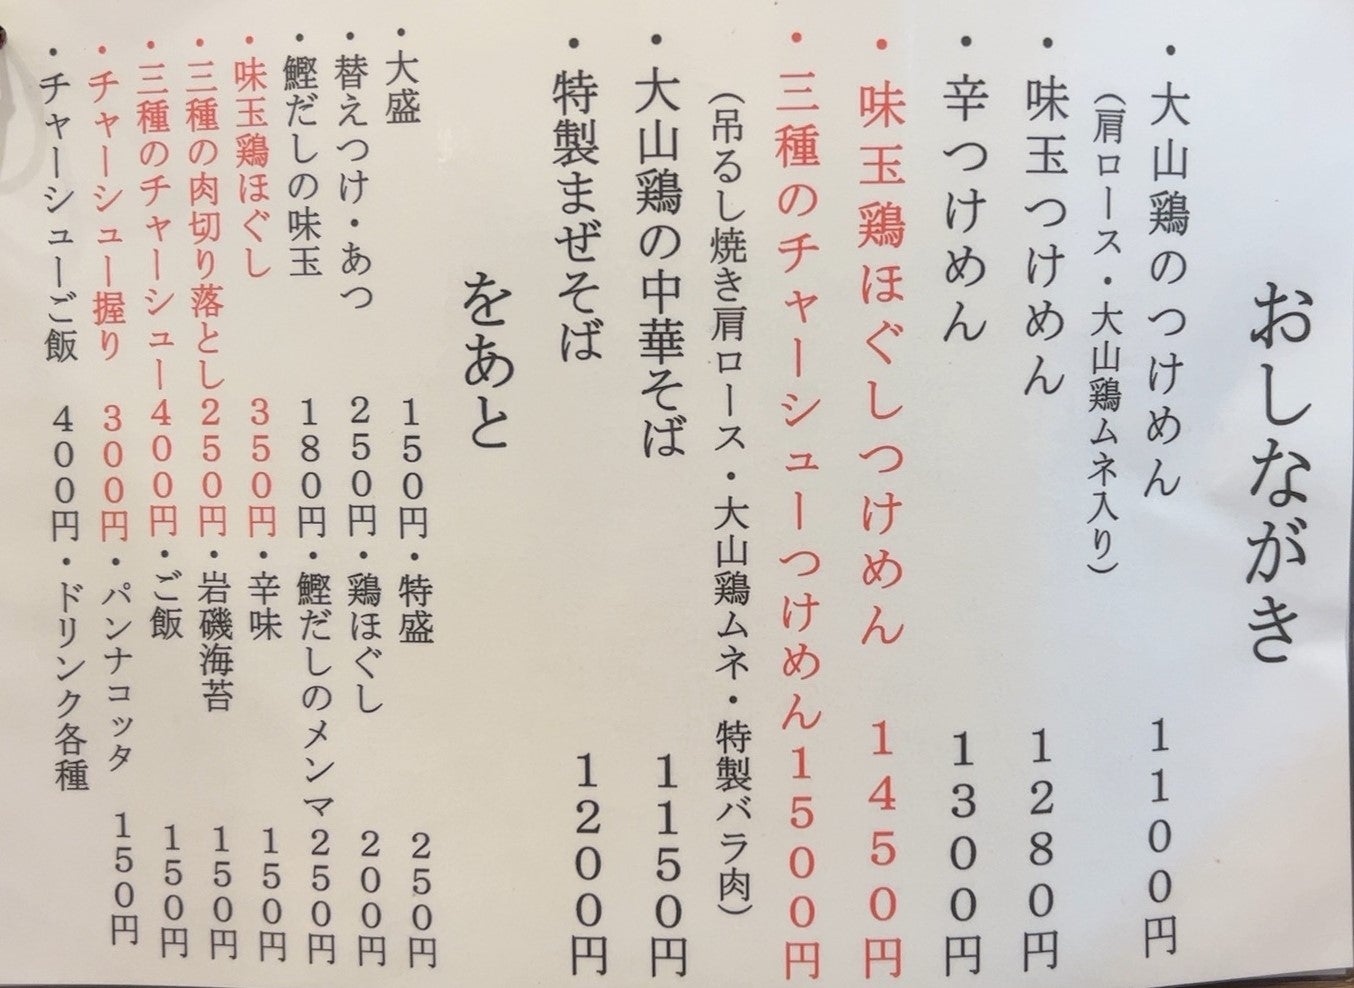 おしながき
・大山鶏のつけめん 1100円
（肩ロース・大山鶏ムネ入り）
・味玉つけめん 1280円
・辛つけめん 1300円
・味玉鶏ほぐしつけめん 1450円
・三種のチャーシューつけめん1500円
（吊るし焼き肩ロース・大山鶏ムネ・特製バラ肉）
・大山鶏の中華そば 1150円
・特製まぜそば 1200円
をあと
・大盛 150円・特盛 250円
・替えつけ・あつ 250円・鶏ほぐし 200円
・鰹だしの味玉 180円・鰹だしのメンマ 250円
・味玉鶏ほぐし 350円・辛味 150円
・三種の肉切り落とし250円・岩磯海苔 150円
・三種のチャーシュー400円・ご飯 150円
・チャーシュー握り 300円・パンナコッタ 150円
・チャーシューご飯 400円・ドリンク各種